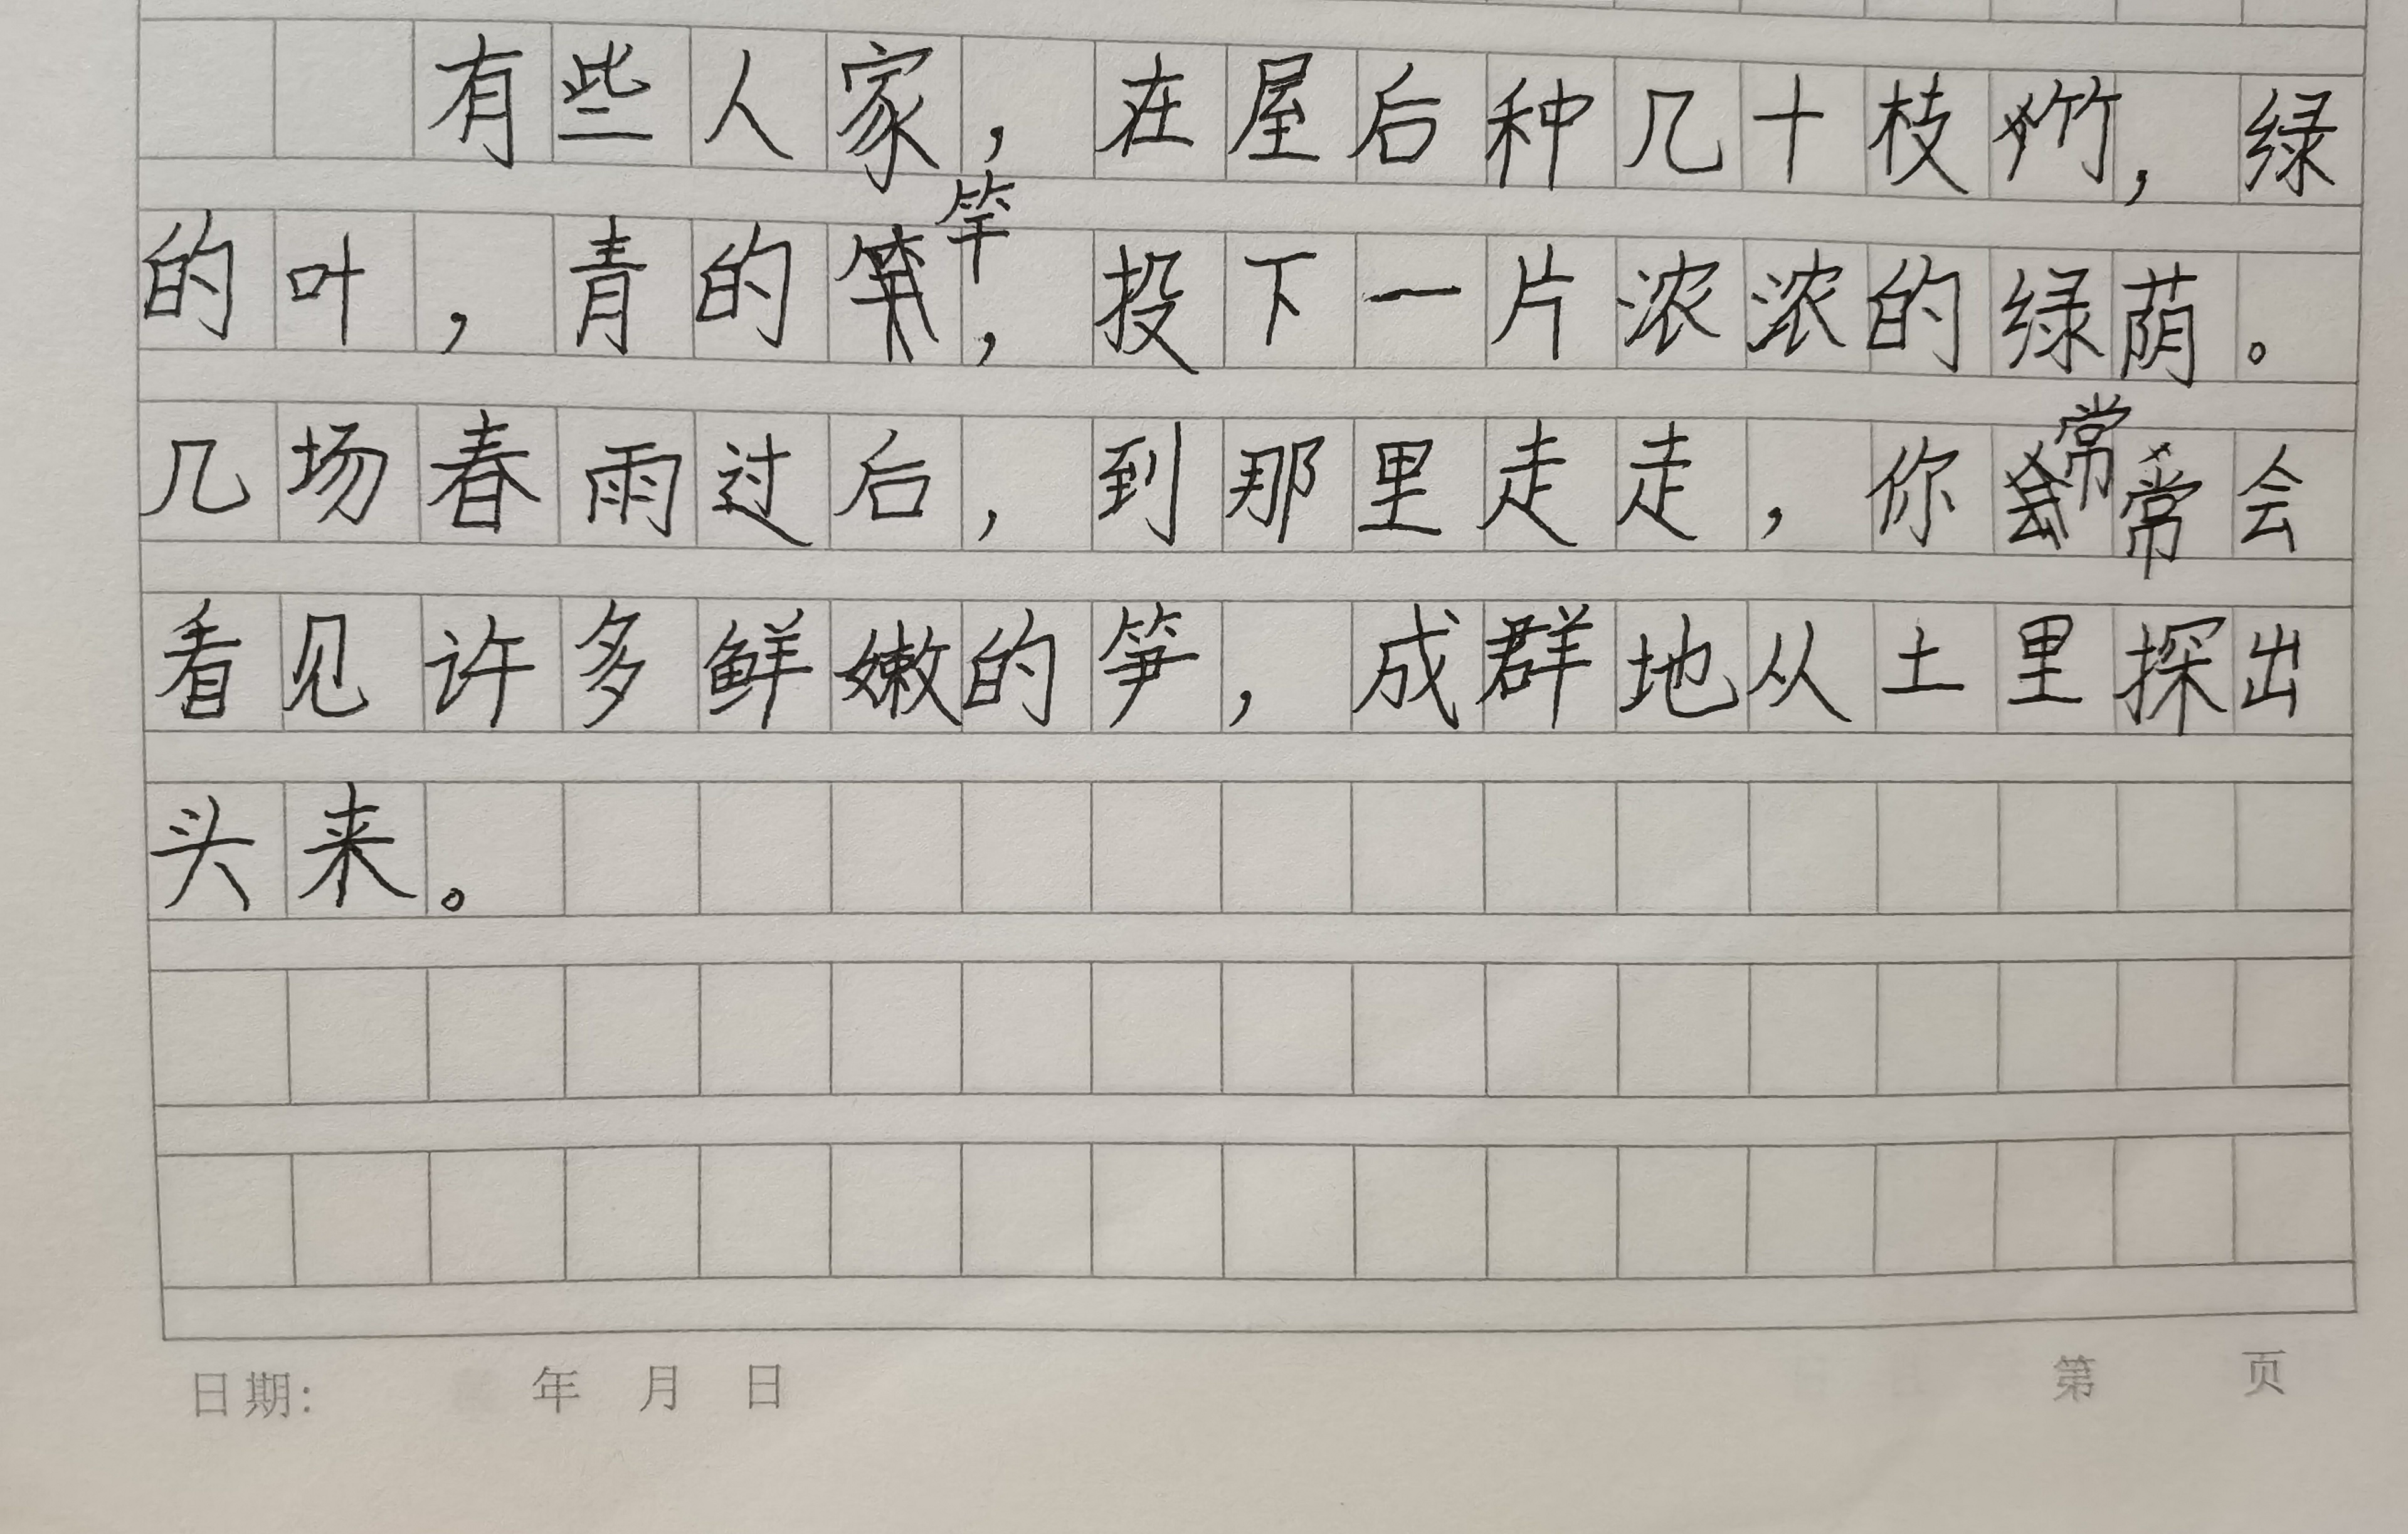 有些人家，在屋后种几十枝竹，绿
的叶，青的竿，投下一片浓浓的绿荫。
几场春雨过后，到那里走走，你常常会
看见许多鲜嫩的笋，成群地从土里探出
头来。
日期: 年 月 日 第 页